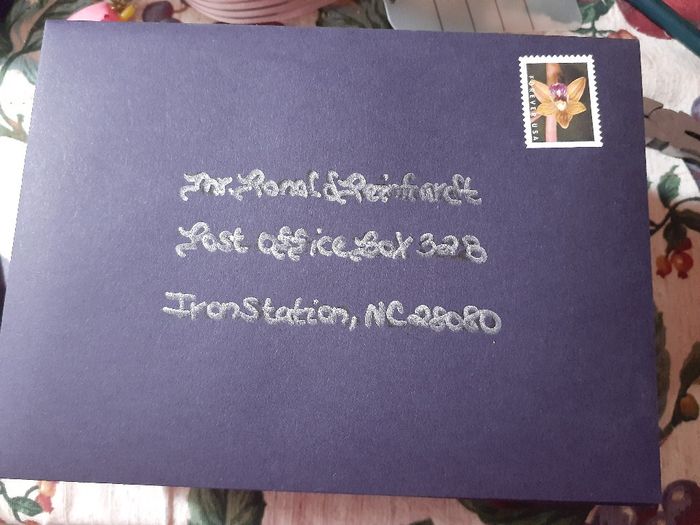 FOREVER USA
Mr. Ronald Reinhardt
Post Office Box 328
Iron Station, NC 28080